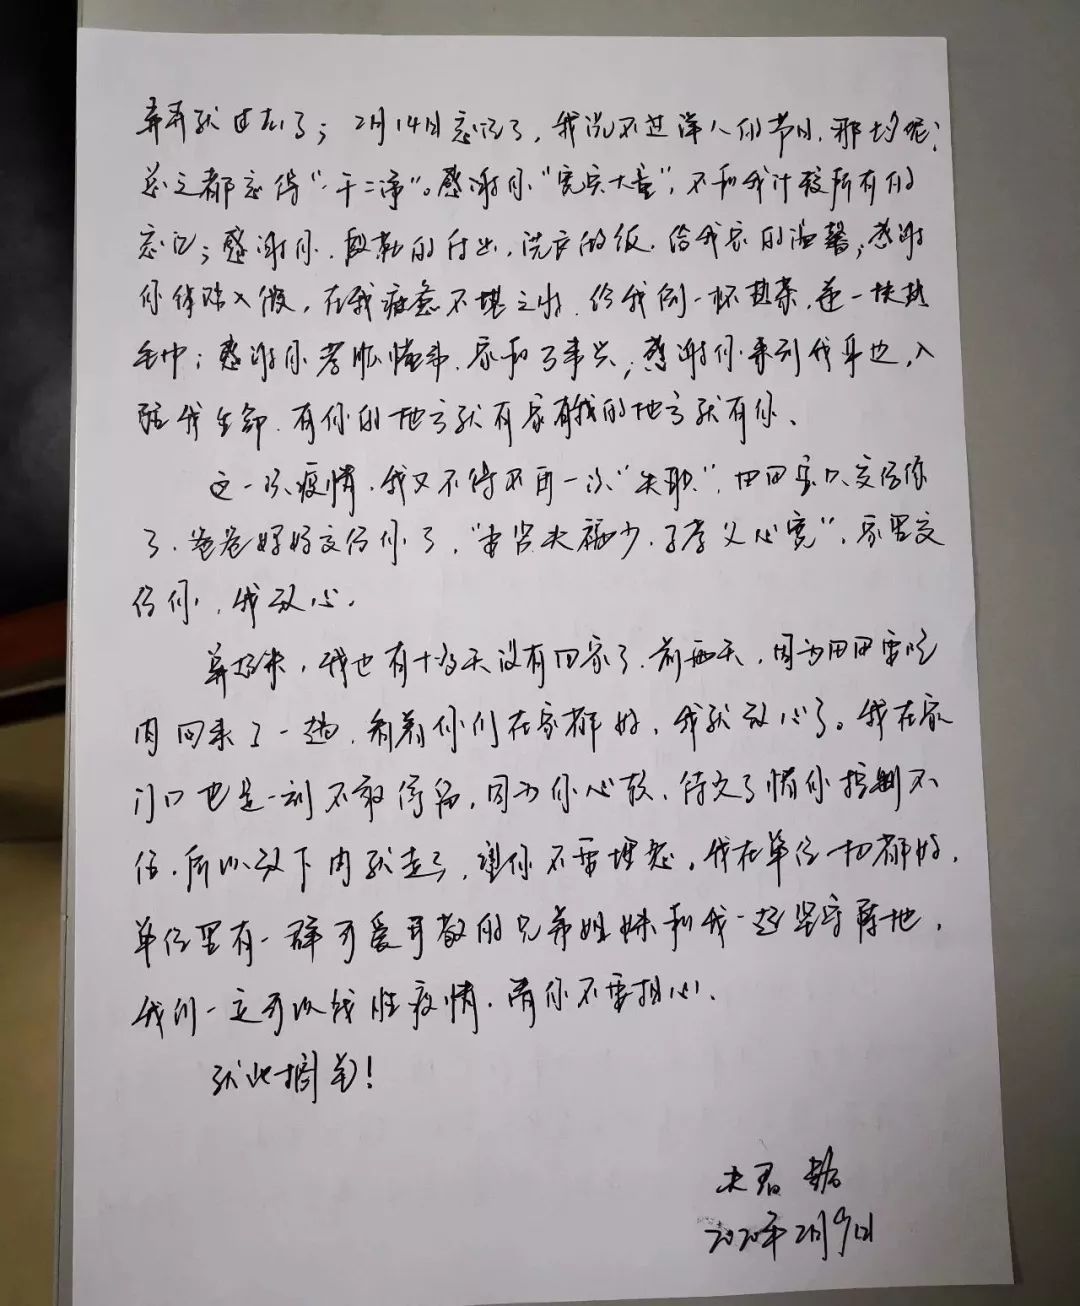 弄弄就过去了；2月14日忘记了，我说不过洋人的节日，那均呢；
总之都忘得“一干二净”。感谢你“宽宏大量”，不和我计较所有的
忘记；感谢你，殷勤的付出，洗衣做饭，给我家的温馨；感谢
你体贴入微，在我疲惫不堪之时，给我倒一杯热茶，递一块热
毛巾；感谢你孝顺懂事，家和万事兴；感谢你来到我身边，入
驻我生命，有你的地方就有家有我的地方就有你、
这一次疫情，我又不得不再一次“失职”，田田宝贝交给你
了，爸爸妈妈交给你了，“妻贤夫祸少，子孝父心宽”，家里交
给你，我放心。
算起来，我也有十多天没有回家了，前两天，因为田田要吃
肉回来了一趟，看着你们在家都好，我就放心了。我在家
门口也是一刻不敢停留，因为你心软，待久了怕你控制不
住，所以放下肉就走了，望你不要埋怨。我在单位一切都好，
单位里有一群可爱可敬的兄弟姐妹和我一起坚守阵地，
我们一定可以战胜疫情，请你不要担心。
就此搁笔！
夫君
2020年2月9日